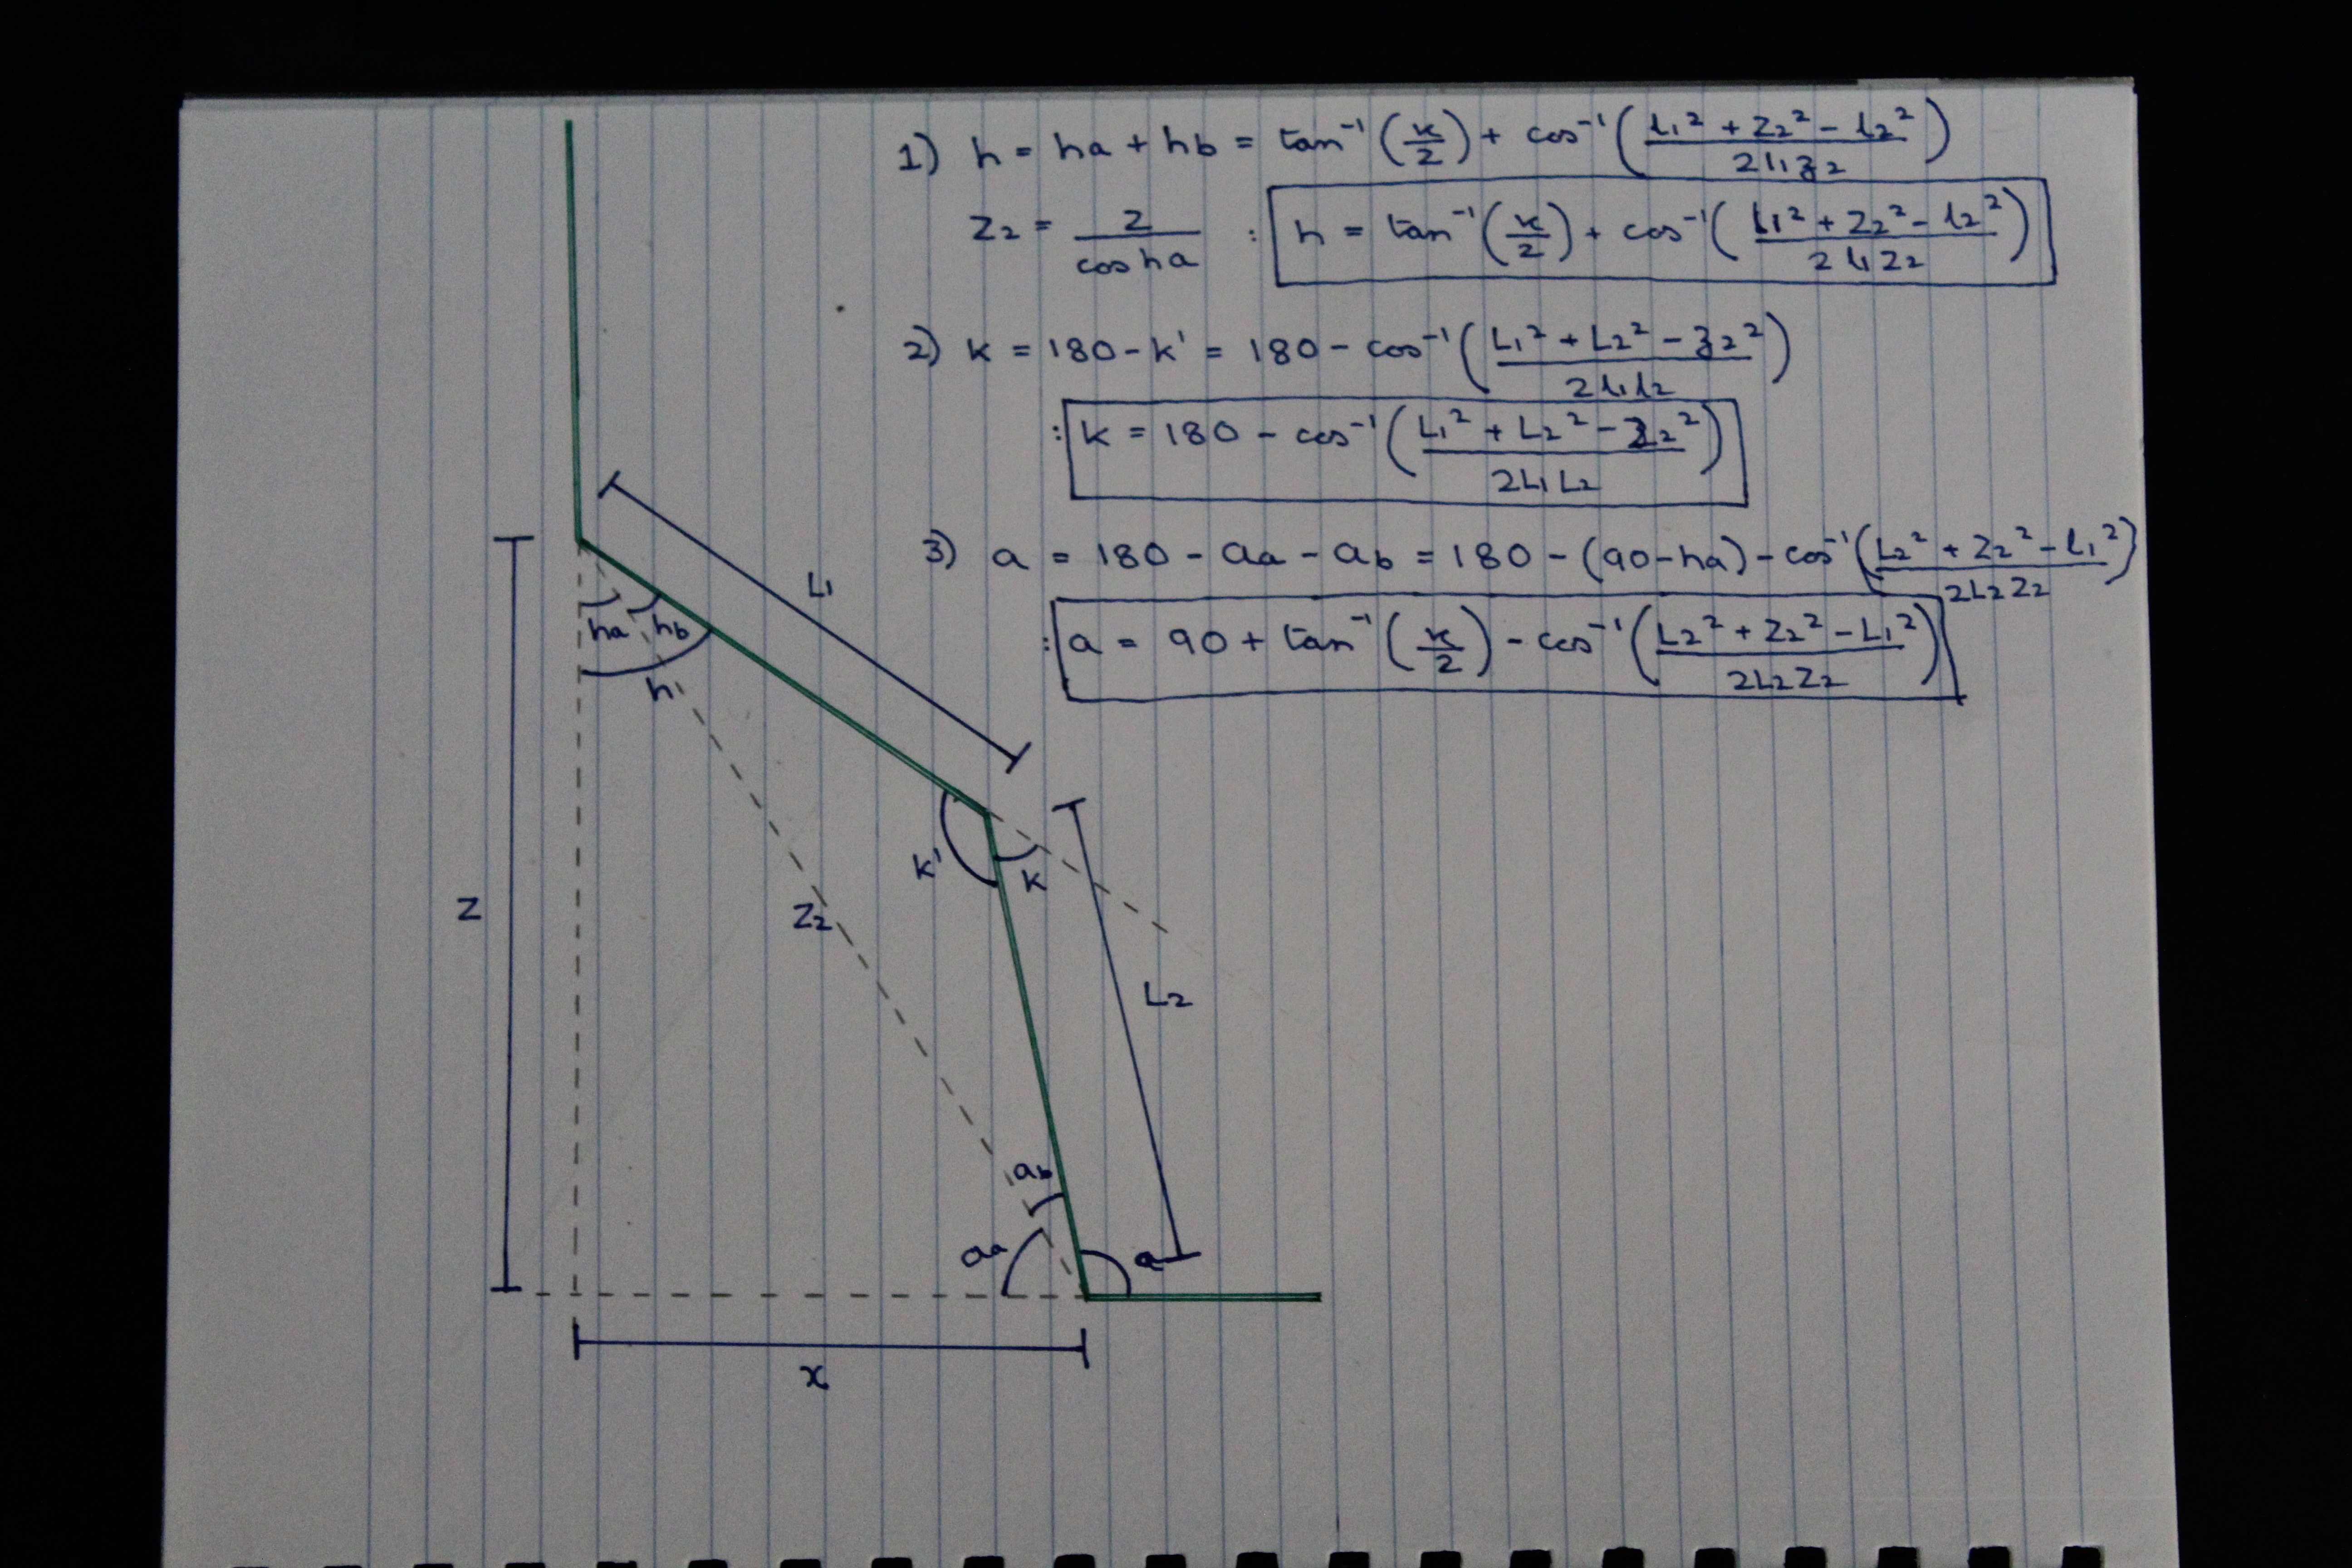 1) h = ha + hb = tan⁻¹(x/z) + cos⁻¹((l₁² + Z₂² - l₂²)/(2l₁z₂))
Z₂ = Z/(cos ha) : h = tan⁻¹(x/z) + cos⁻¹((l₁² + Z₂² - l₂²)/(2l₁Z₂))
2) k = 180 - k' = 180 - cos⁻¹((L₁² + L₂² - z₂²)/(2l₁l₂))
: k = 180 - cos⁻¹((L₁² + L₂² - Z₂²)/(2L₁L₂))
3) a = 180 - aa - ab = 180 - (90 - ha) - cos⁻¹((L₂² + Z₂² - l₁²)/(2L₂Z₂))
: a = 90 + tan⁻¹(x/z) - cos⁻¹((L₂² + Z₂² - L₁²)/(2L₂Z₂))
L₁
ha hb
h
k'
k
Z
Z₂
L₂
ab
aa
a
x